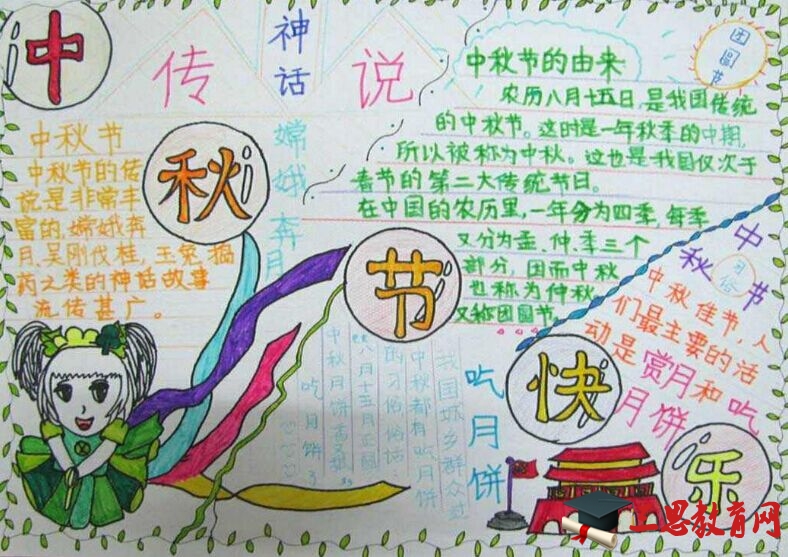 中秋节快乐
神话
传说
团圆节
中秋节
中秋节的传
说是非常丰
富的,嫦娥奔
月、吴刚伐桂,玉兔捣
药之类的神话故事
流传甚广。
嫦娥奔月
中秋节的由来
农历八月十五日,是我国传统
的中秋节。这时是一年秋季的中期,
所以被称为中秋。这也是我国仅次于
春节的第二大传统节日。
在中国的农历里,一年分为四季,每季
又分为孟、仲、季三个
部分,因而中秋
也称为仲秋
又称团圆节
中秋节
习俗
中秋佳节,人
们最主要的活
动是赏月和吃
月饼
吃月饼
我国城乡群众过
中秋都有吃月饼
的习俗俗话:
“八月十五月正圆
中秋月饼香又甜”
吃月饼
教育网